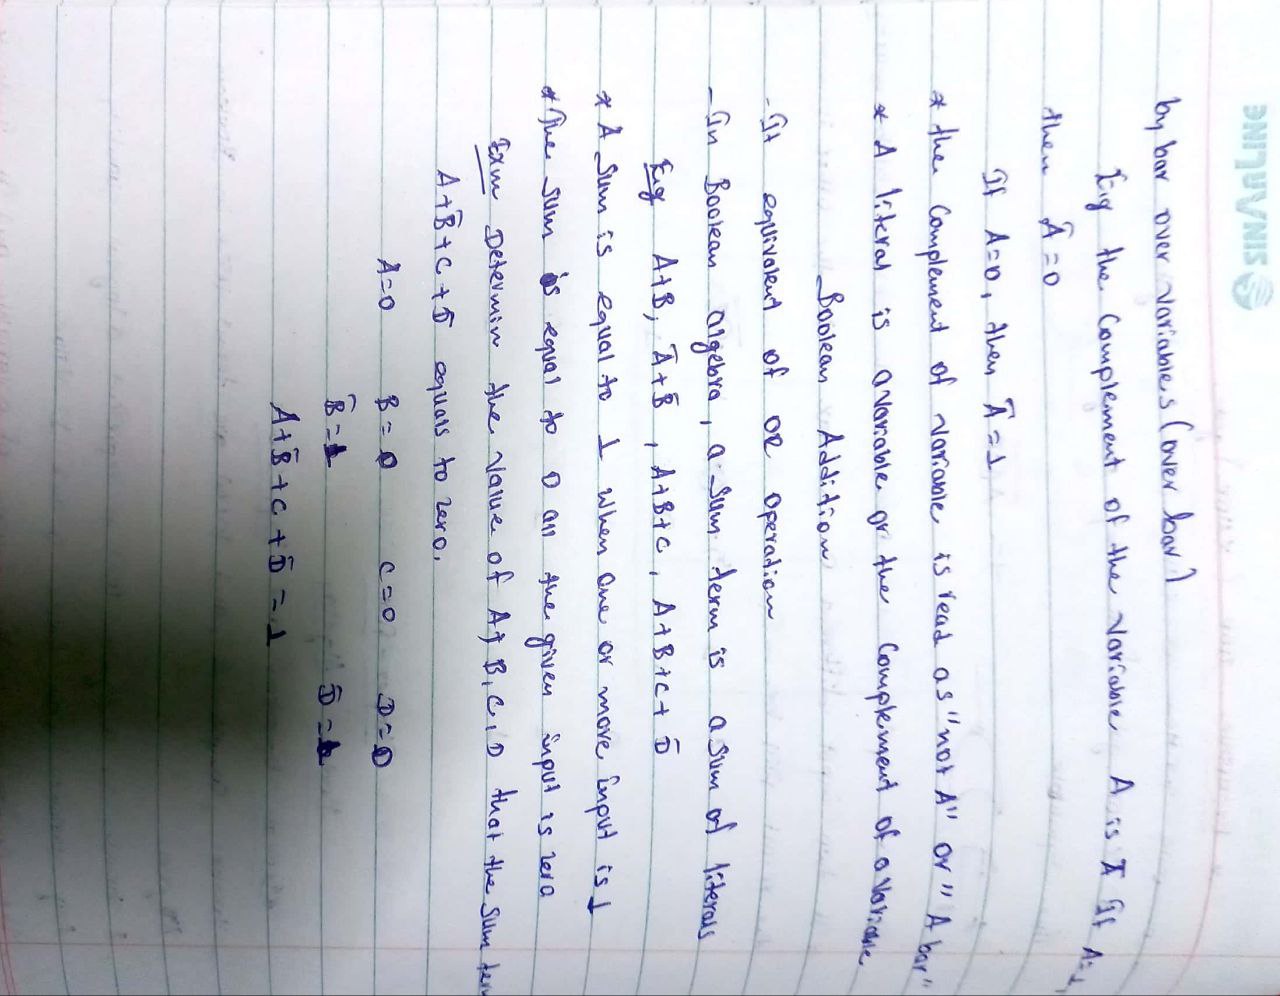 SINARLINE
by bar over variables (over bar)
Eg the Complement of the variable A is A̅ If A=1,
then A̅ = 0
If A=0, then A̅ = 1
* the Complement of variable is read as "not A" or "A bar"
* A literal is a variable or the Complement of a variable
Boolean Addition
- It equivalent of OR Operation
- In Boolean algebra, a sum term is a sum of literals
Eg A+B, A̅+B̅, A+B+C, A+B+C+D̅
* A Sum is equal to 1 when one or more input is 1
* The sum is equal to 0 all the given input is zero
Exm Determin the value of A, B, C, D that the sum term
A+B̅+C+D̅ equals to zero.
A=0 B=0 C=0 D=0
B̅=1 D̅=1
A+B̅+C+D̅ = 1